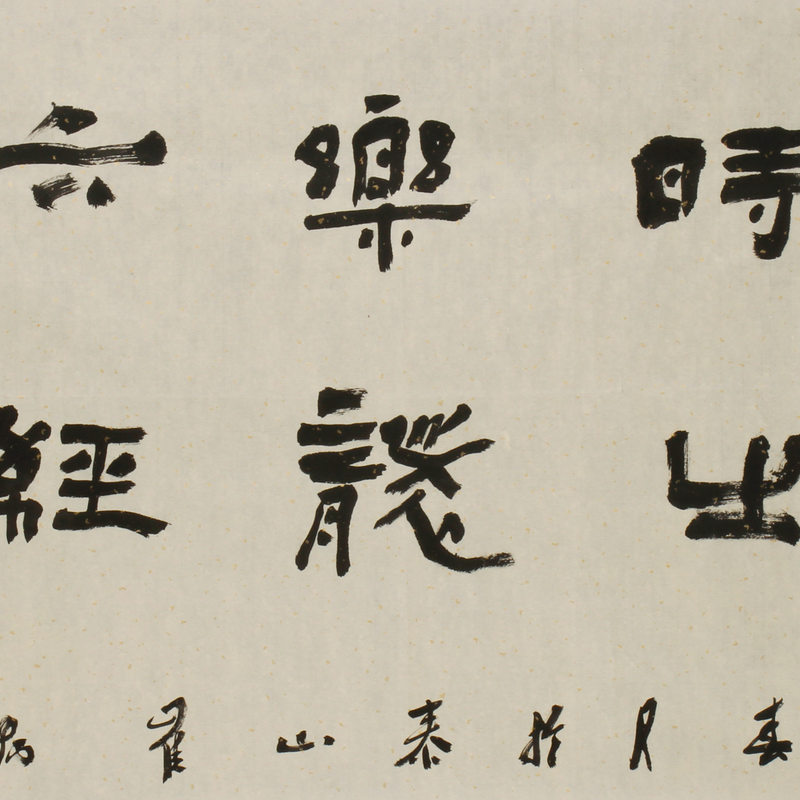 時
樂
六經
春月於泰山崔